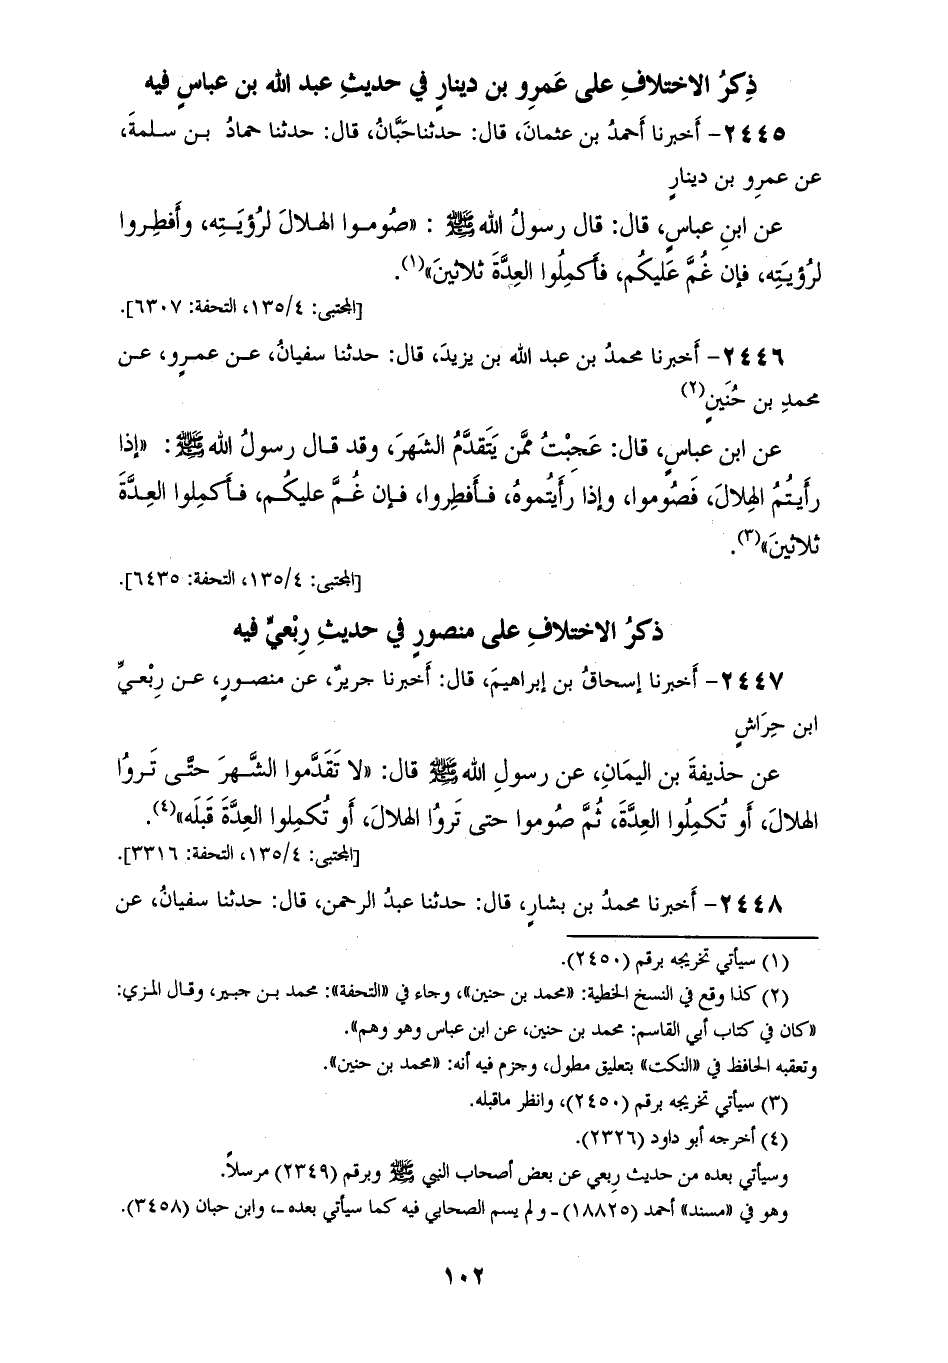 ذِكرُ الاختلافِ على عَمرِو بن دينارٍ في حديثِ عبد الله بن عباسٍ فيه
٢٤٤٥- أَخبرنا أَحمدُ بن عثمانَ، قال: حدثنا حَبَّانُ، قال: حدثنا حمادُ بـن سـلمةَ،
عن عمرِو بن دينارٍ
عن ابنِ عباسٍ، قال: قال رسولُ الله ﷺ : «صُومـوا الهـلالَ لرُؤيَـتِه، وأَفطِـروا
لرُؤيَتِه، فإن غُمَّ عَليكُم، فأَكمِلُوا العِدَّةَ ثلاثينَ»(١).
[المجتبى: ١٣٥/٤، التحفة: ٦٣٠٧].
٢٤٤٦- أَخبرنا محمدُ بن عبد الله بن يزيدَ، قال: حدثنا سفيانُ، عـن عمـرٍو، عـن
محمدِ بن حُنَينٍ(٢)
عن ابن عباسٍ، قال: عَجِبْتُ ممَّن يَتَقدَّمُ الشهرَ، وقد قـال رسولُ الله ﷺ: «إذا
رأَيـتُمُ الهِلالَ، فَصُوموا، وإذا رأَيتُموهُ، فـأَفطِروا، فـإن غُـمَّ عليكـم، فـأَكمِلوا العِـدَّةَ
ثلاثينَ»(٣).
[المجتبى: ١٣٥/٤، التحفة: ٦٤٣٥].
ذكرُ الاختلافِ على منصورٍ في حديثِ رِبْعيٍّ فيه
٢٤٤٧- أَخبرنا إسحاقُ بن إبراهيمَ، قال: أَخبرنا جريرٌ، عن منصـورٍ، عـن رِبْعـيِّ
ابن حِرَاشٍ
عن حذيفةَ بن اليمَانِ، عن رسولِ الله ﷺ قال: «لا تَقَدَّموا الشَّهـرَ حتَّـى تَـروُا
الهلالَ، أَو تُكمِلُوا العِدَّةَ، ثُمَّ صُوموا حتى تَروُا الهلالَ، أَو تُكمِلوا العِدَّةَ قَبلَه»(٤).
[المجتبى: ١٣٥/٤، التحفة: ٣٣١٦].
٢٤٤٨- أَخبرنا محمدُ بن بشارٍ، قال: حدثنا عبدُ الرحمن، قال: حدثنا سفيانُ، عن
(١) سيأتي تخريجه برقم (٢٤٥٠).
(٢) كذا وقع في النسخ الخطية: «محمد بن حنين»، وجاء في «التحفة»: محمد بـن جبير، وقال المزي:
«كان في كتاب أبي القاسم: محمد بن حنين، عن ابن عباس وهو وهم».
وتعقبه الحافظ في «النكت» بتعليق مطول، وجزم فيه أنه: «محمد بن حنين».
(٣) سيأتي تخريجه برقم (٢٤٥٠)، وانظر ماقبله.
(٤) أخرجه أبو داود (٢٣٢٦).
وسيأتي بعده من حديث رِبعي عن بعض أصحاب النبي ﷺ وبرقم (٢٣٤٩) مرسلاً.
وهو في «مسند» أحمد (١٨٨٢٥) ـ ولم يسم الصحابي فيه كما سيأتي بعده ـ، وابن حبان (٣٤٥٨).
١٠٢